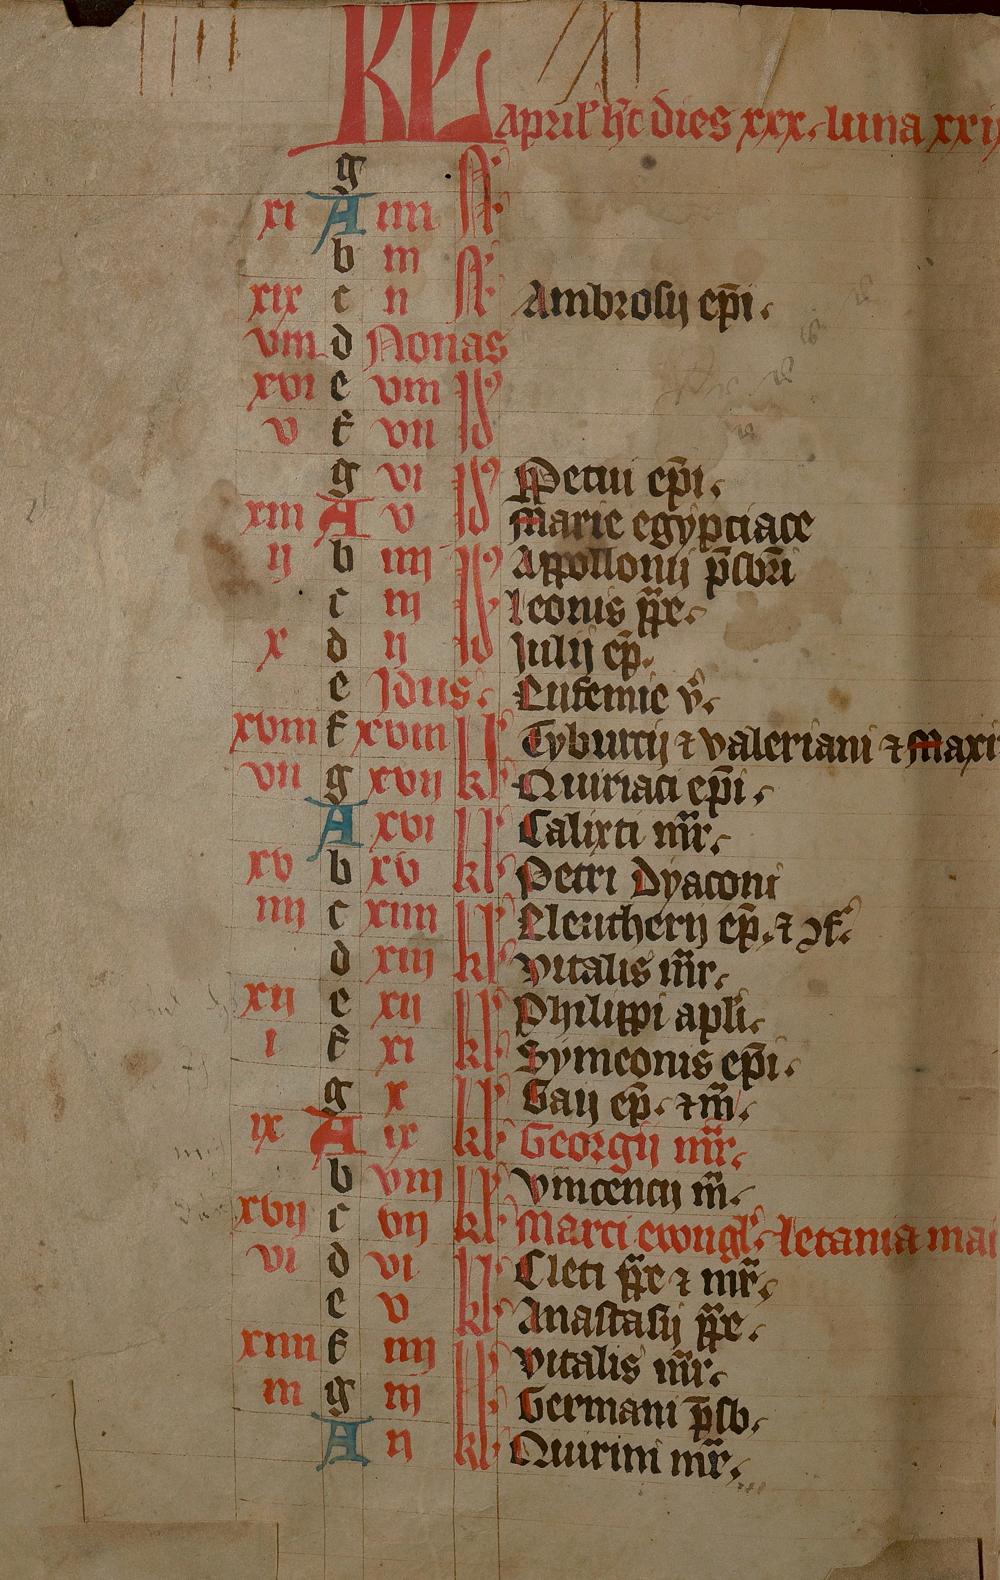 KL
Aprilʼ hꝫ dies xxx. luna xxi
g
xi A iiii N
b iii
xix c ii N Ambrosij ep̄i.
viii d Nonas
xvi e viii Id
v f vii Id
g vi Id Petui ep̄i.
xiii A v Id Marie egypciace
ij b iiij Id Appollonij p̄sbri
c iii Id Leonis p̄pe.
x d ij Id Julij ep̄.
e Jdus. Eufemie v̄.
xviii f xviii kl Tyburcij ⁊ valeriani ⁊ Maxi
vii g xvij kl Quiriaci ep̄i.
A xvi kl Calixti mr̄.
xv b xv kl Petri Dyaconi
iiij c xiiii kl Eleutherij ep̄. ⁊ ꝯf.
d xiii kl Vitalis mr̄.
xij e xij kl Philippi apl̄i.
i f xi kl Symeonis ep̄i.
g x kl Gaij ep̄. ⁊ m̄.
ix A ix kl Georgij mr̄.
b viij kl Vincencij m̄.
xvij c vij kl Marci ewngl. letania mai
vi d vi kl Cleti p̄pe ⁊ mr̄.
e v kl Anastasij p̄pe.
xiiii f iiij kl Vitalis mr̄.
iii g iii kl Germani p̄sb.
A ii kl Quirini mr̄.